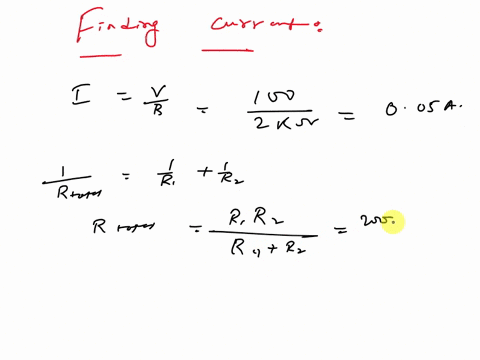 Finding current:
I = V/R = 100/2KΩ = 0.05A.
1/R total = 1/R1 + 1/R2
R total = R1 R2/R1 + R2 = 200